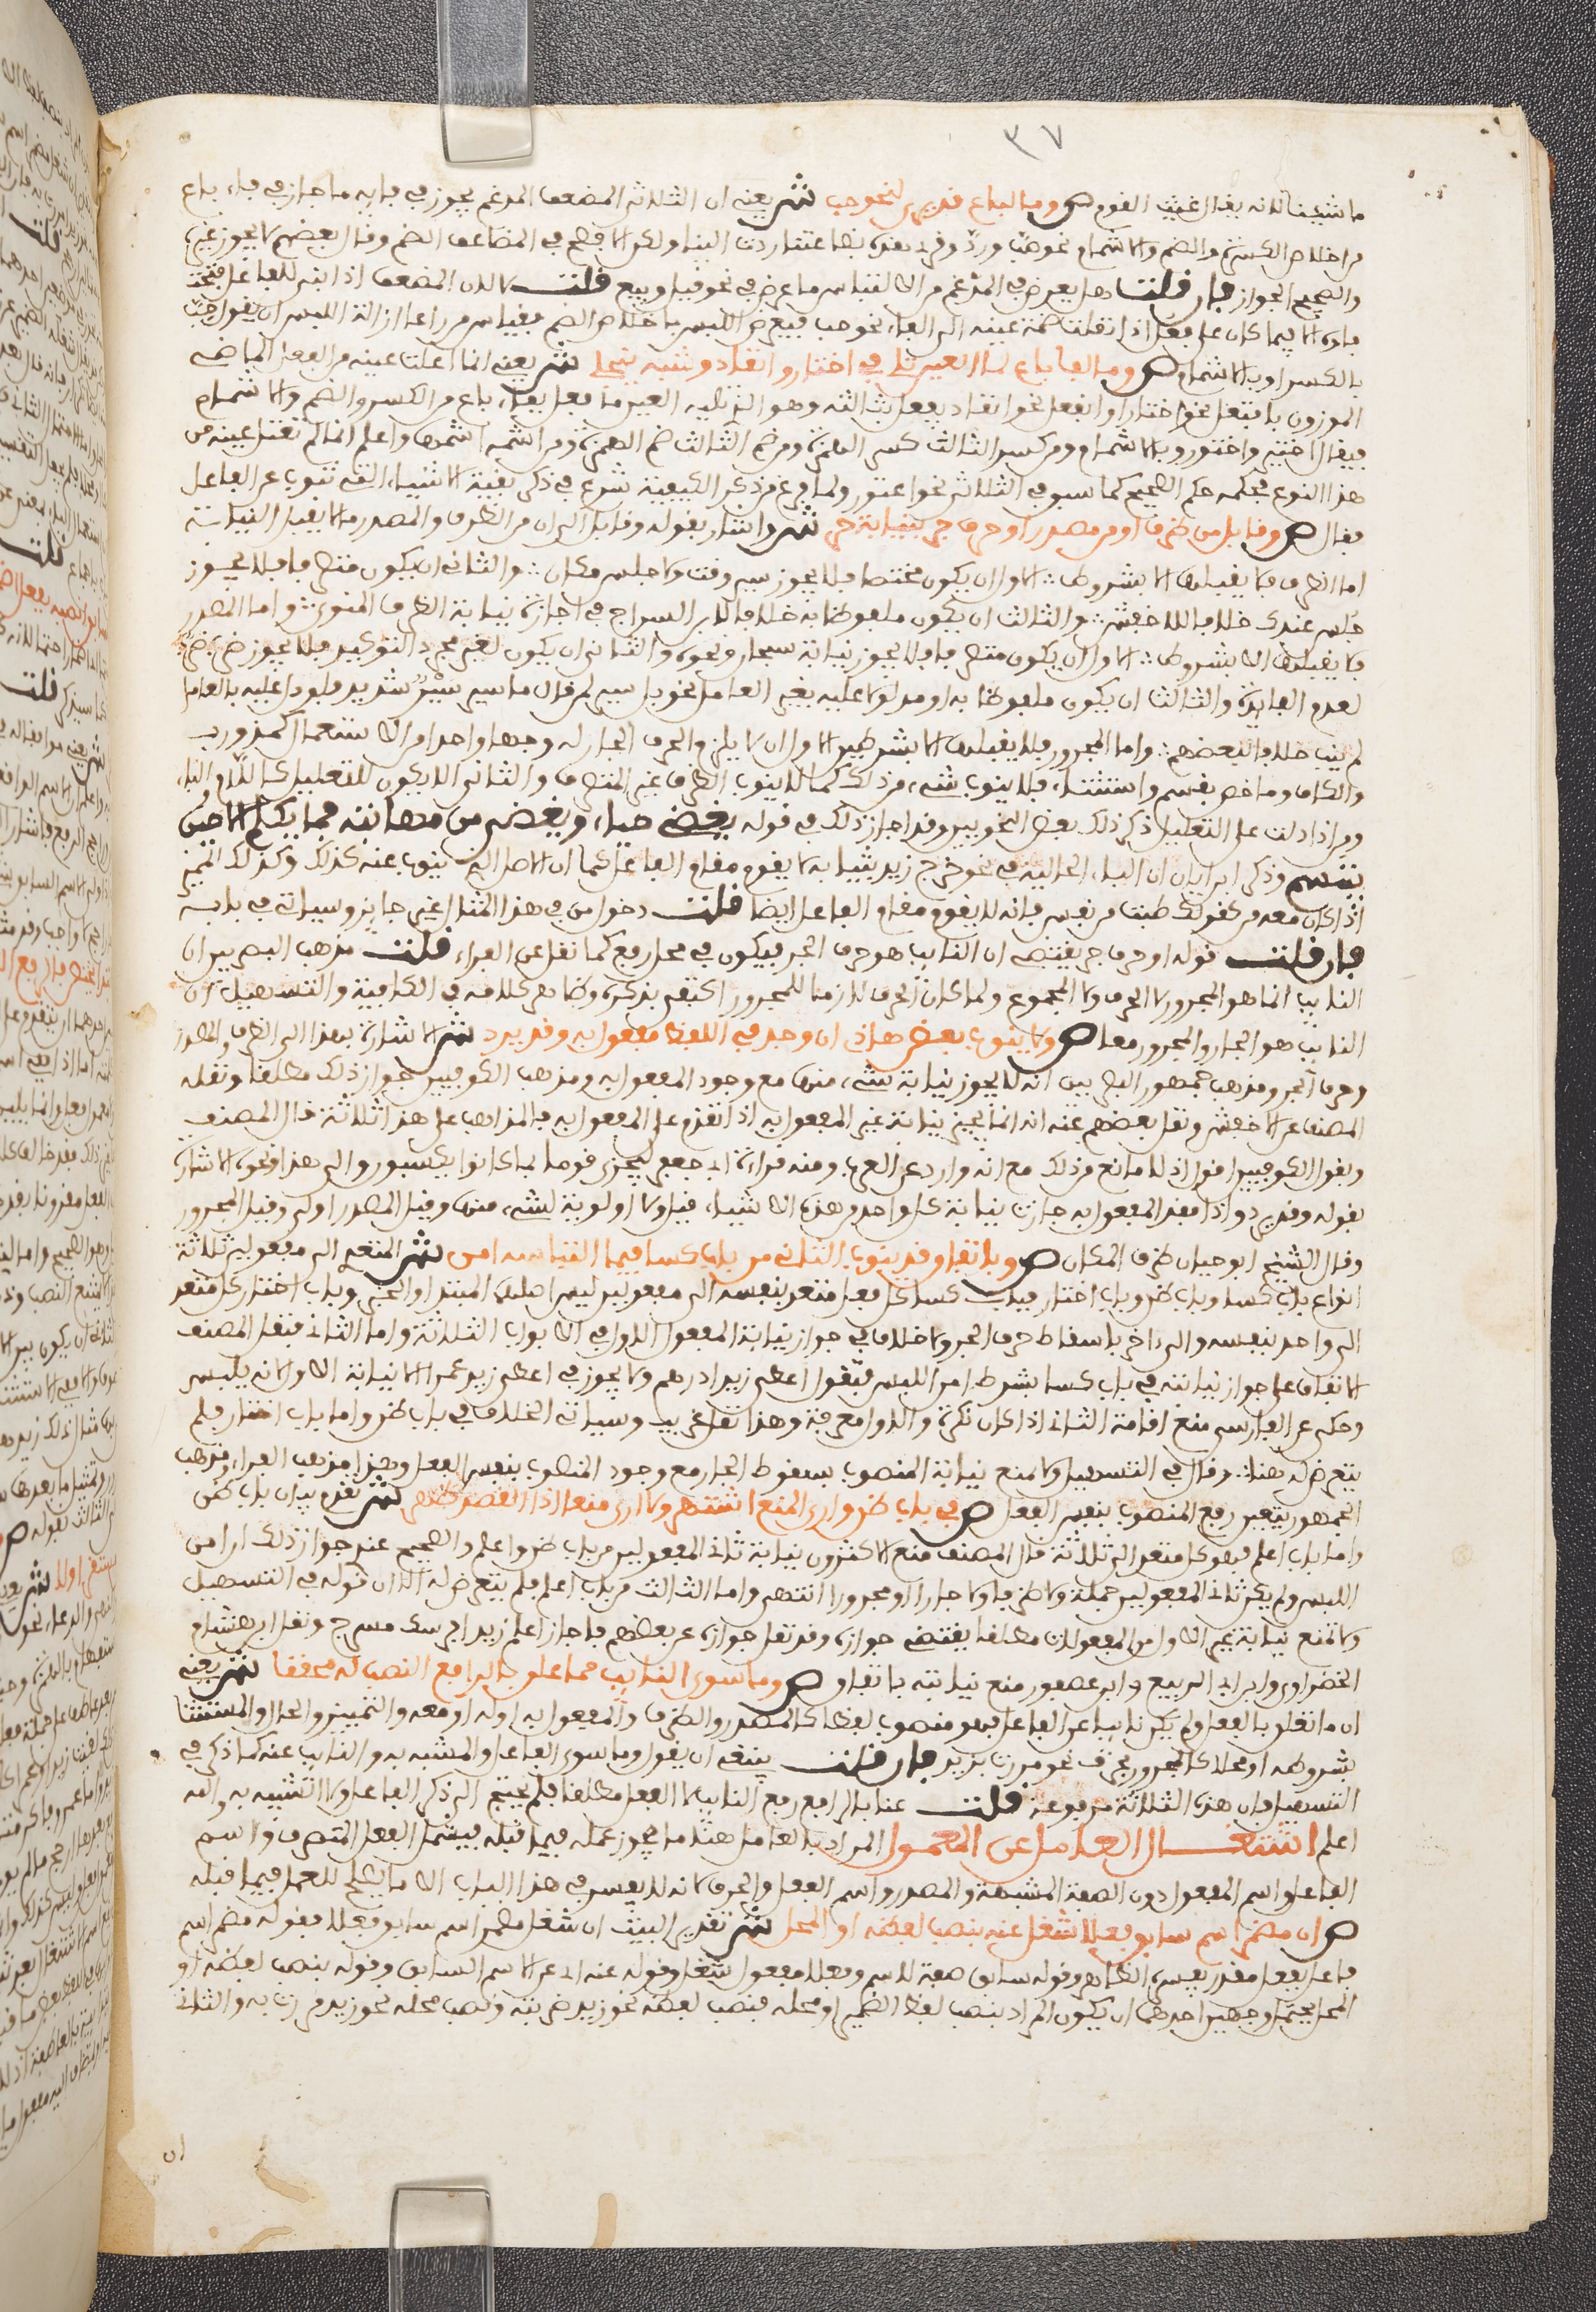 ٣٧
ما شيخنا لانه يقال غيث القوم ص وما لباع قد يرى لنحو حب ش يعني ان الثلاثي المضعف المدغم يجوز في فايه ما جاز في فاء باع
من اخلاص الكسرة والضم والاشمام نحو حب ورد وقد قرئ بضاعتنا ردت الينا ولكن الافصح في المضاعف الضم وقال بعضهم لا يجوز غيره
والصحيح الجواز فان قلت هل يعرض في المدغم من الالتباس ما عرض في نحو قيل وبيع قلت لا لان المضعف اذا بني للفاعل فتحت
فاوه الا فيما كان على فعل اذا نقلت ضمة عينه الى الفاء نحو حب فيعرض اللبس باخلاص الضم فقياس من راعا ازالة اللبس ان يقول حب
بالكسر او بالاشمام ص وما لفا باع لما العين تلي في اختار وانقاد وشبه ينجلي ش يعني انما اعلت عينه من الفعل الماضي
الموزون بافتعل نحو اختار او انفعل نحو انقاد يفعل بثالثه وهو الذي تليه العين ما فعل بفاء باع من الكسر والضم والاشمام
فيقال اختير واختور وبالاشمام ومن كسر الثالث كسر الهمزة ومن ضم الثالث ضم الهمزة ومن اشمه اشمها واعلم انما لم تعتل عينه من
هذا النوع فحكمه حكم الصحيح كما سبق في الثلاثي نحو اعتور ولما فرغ من ذكر الكيفية شرع في ذكر بقية الاشياء التي تنوب عن الفاعل
فقال ص وقابل من ظرف او من مصدر او حرف جر بنيابة حر ش واشار بقوله وقابل الى ان من الظرف والمصدر ما لا يقبل النيابة
اما الظرف فلا يقبلها الا بشروط الاول ان يكون مختصا فلا يجوز سير وقت ولا جلس مكان والثاني ان يكون متصرفا فلا يجوز
جلس عندك خلافا للاخفش والثالث ان يكون ملفوظا به خلافا لابن السراج في اجازته نيابة الظرف المنوي واما المصدر
فلا يقبلها الا بشروط الاول ان يكون متصرفا فلا يجوز نيابة سبحان ونحوه والثاني ان يكون لغير مجرد التوكيد فلا يجوز ضرب ضرب
لعدم الفايدة والثالث ان يكون ملفوظا به او مدلولا عليه بغير العامل نحو بل سير لمن قال ما سير سير شديد فلو دل عليه بالعامل
لم ينب خلافا لبعضهم واما المجرور فلا يقبلها الا بشرطين الاول ان لا يلزم الحرف الجار له وجها واحدا من الاستعمال كمذ ورب
والكاف وما خص بقسم واستثناء فلا ينوب شيء من ذلك كما لا ينوب الظرف غير المتصرف والثاني الا يكون للتعليل كاللام والباء
ومن اذا دلت على التعليل ذكر ذلك بعض النحويين وقد اجاز ذلك في قوله يغضي حياء ويغضى من مهابته فما يكلم الا حين
يبتسم وذكر ابن اياز ان الباء الحالية في نحو خرج زيد بثيابه لا يقوم مقام الفاعل كما ان الاصل الذي ينوب عنه كذلك وكذلك المميز
اذا كان معه من كقولك طبت من نفس فانه لا يقوم مقام الفاعل ايضا قلت دخول من في هذا المثال غير جايز وسياتي في بابه
فان قلت قوله او حرف جر يقتضي ان النايب هو حرف الجر فيكون في محل رفع كما نقل عن الفراء قلت مذهب البصريين ان
النايب انما هو المجرور لا الحرف ولا المجموع ولما كان الحرف لازما للمجرور اكتفى بذكره وظاهر كلامه في الكافية والتسهيل ان
النايب هو الجار والمجرور معا ص ولا ينوب بعض هذي ان وجد في اللفظ مفعول به وقد يرد ش الاشارة بهذا الى الظرف والمصدر
وحرف الجر ومذهب جمهور البصريين انه لا يجوز نيابة شيء منها مع وجود المفعول به ومذهب الكوفيين جواز ذلك مطلقا ونقله
المصنف عن الاخفش ونقل بعضهم عنه انه انما يجيز نيابة غير المفعول به اذا تقدم على المفعول به فالمذاهب على هذا ثلاثة قال المصنف
وبقول الكوفيين اقول اذ لا مانع من ذلك مع انه وارد عن العرب ومنه قراءة ابي جعفر ليجزى قوما بما كانوا يكسبون والى هذا ونحوه الاشارة
بقوله وقد يرد واذا فقد المفعول به جازت نيابة كل واحد من هذه الاشياء قيل ولا اولوية لشيء منها وقيل المصدر اولى وقيل المجرور
وقال الشيخ ابو حيان ظرف المكان ص وباتفاق قد ينوب الثاني من باب كسا فيما التباسه امن ش المتعدي الى مفعولين ثلاثة
انواع باب كسا وباب ظن وباب اختار فباب كسا كل فعل متعد بنفسه الى مفعولين ليس اصلهما المبتدا والخبر وباب اختار كل متعد
الى واحد بنفسه والى الاخر باسقاط حرف الجر ولا خلاف في جواز نيابة المفعول الاول في الابواب الثلاثة واما الثاني فنقل المصنف
الاتفاق على جواز نيابته في باب كسا بشرط امن اللبس فتقول اعطي زيدا درهم ولا يجوز في اعطى زيد عمرا الا نيابة الاول لانه يلبس
وحكي عن الفارسي منع اقامة الثاني اذا كان نكرة والاول معرفة وهذا نقل غريب وسياتي الخلاف في باب ظن واما باب اختار فلم
يتعرض له هنا وقال في التسهيل ولا تمنع نيابة المنصوب بسقوط الجار مع وجود المنصوب بنفس الفعل وهذا مذهب الفراء ومذهب
الجمهور تعين رفع المنصوب بنفس الفعل ص في باب ظن وارى المنع اشتهر ولا ارى منعا اذا القصد ظهر ش تقدم بيان باب ظن
واما باب اعلم فهو كل متعد الى ثلاثة قال المصنف منع الاكثرون نيابة ثاني المفعولين من باب ظن واعلم والصحيح عندي جواز ذلك ان امن
اللبس ولم يكن ثاني المفعولين جملة ولا ظرفا ولا جارا او مجرورا انتهى واما الثالث من باب اعلم فلم يتعرض له الا ان قوله في التسهيل
ولا تمنع نيابة غير الاول من المفعولات مطلقا يقتضي جوازه وقد نقل جوازه عن بعضهم فاجاز اعلم زيدا فرسك مسرج ونقل ابن هشام
الخضراوي وابن ابي الربيع وابن عصفور منع نيابته باتفاق ص وما سوى النايب مما علقا بالرافع النصب له محققا ش يعني
ان ما تعلق بالفعل ولم يكن نايبا عن الفاعل فهو منصوب لفظا كالمصدر والظرف والمفعول به او له او معه والتمييز والحال والمستثنا
بشروطه او محلا كالمجرور بحرف نحو مررت بزيد فان قلت ينبغي ان يقول وما سوى الفاعل والمشبه به والنايب عنه كما ذكر في
التسهيل فان هذه الثلاثة مرفوعة قلت عنا بالرافع رافع النايب لا الفعل مطلقا فلم يحتج الى ذكر الفاعل ولا التشبيه به والله
اعلم اشتغال العامل عن المعمول المراد بالعامل هنا ما يجوز عمله فيما قبله فيشمل الفعل المتصرف واسم
الفاعل واسم المفعول دون الصفة المشبهة والمصدر واسم الفعل والحرف لانه لا يفسر في هذا الباب الا ما يصلح للعمل فيما قبله
ص ان مضمر اسم سابق فعلا شغل عنه بنصب لفظه او المحل ش تقدير البيت ان شغل مضمر اسم سابق فعلا فقوله مضمر اسم
فاعل بفعل مقدر يفسره الظاهر وقوله سابق صفة لاسم وفعلا مفعول شغل وقوله عنه اي عن الاسم السابق وقوله بنصب لفظه او
المحل يحتمل وجهين احدهما ان يكون المراد بنصب لفظ الضمير او محله فنصب لفظه نحو زيد ضربته ونصب محله نحو زيد مررت به والثاني